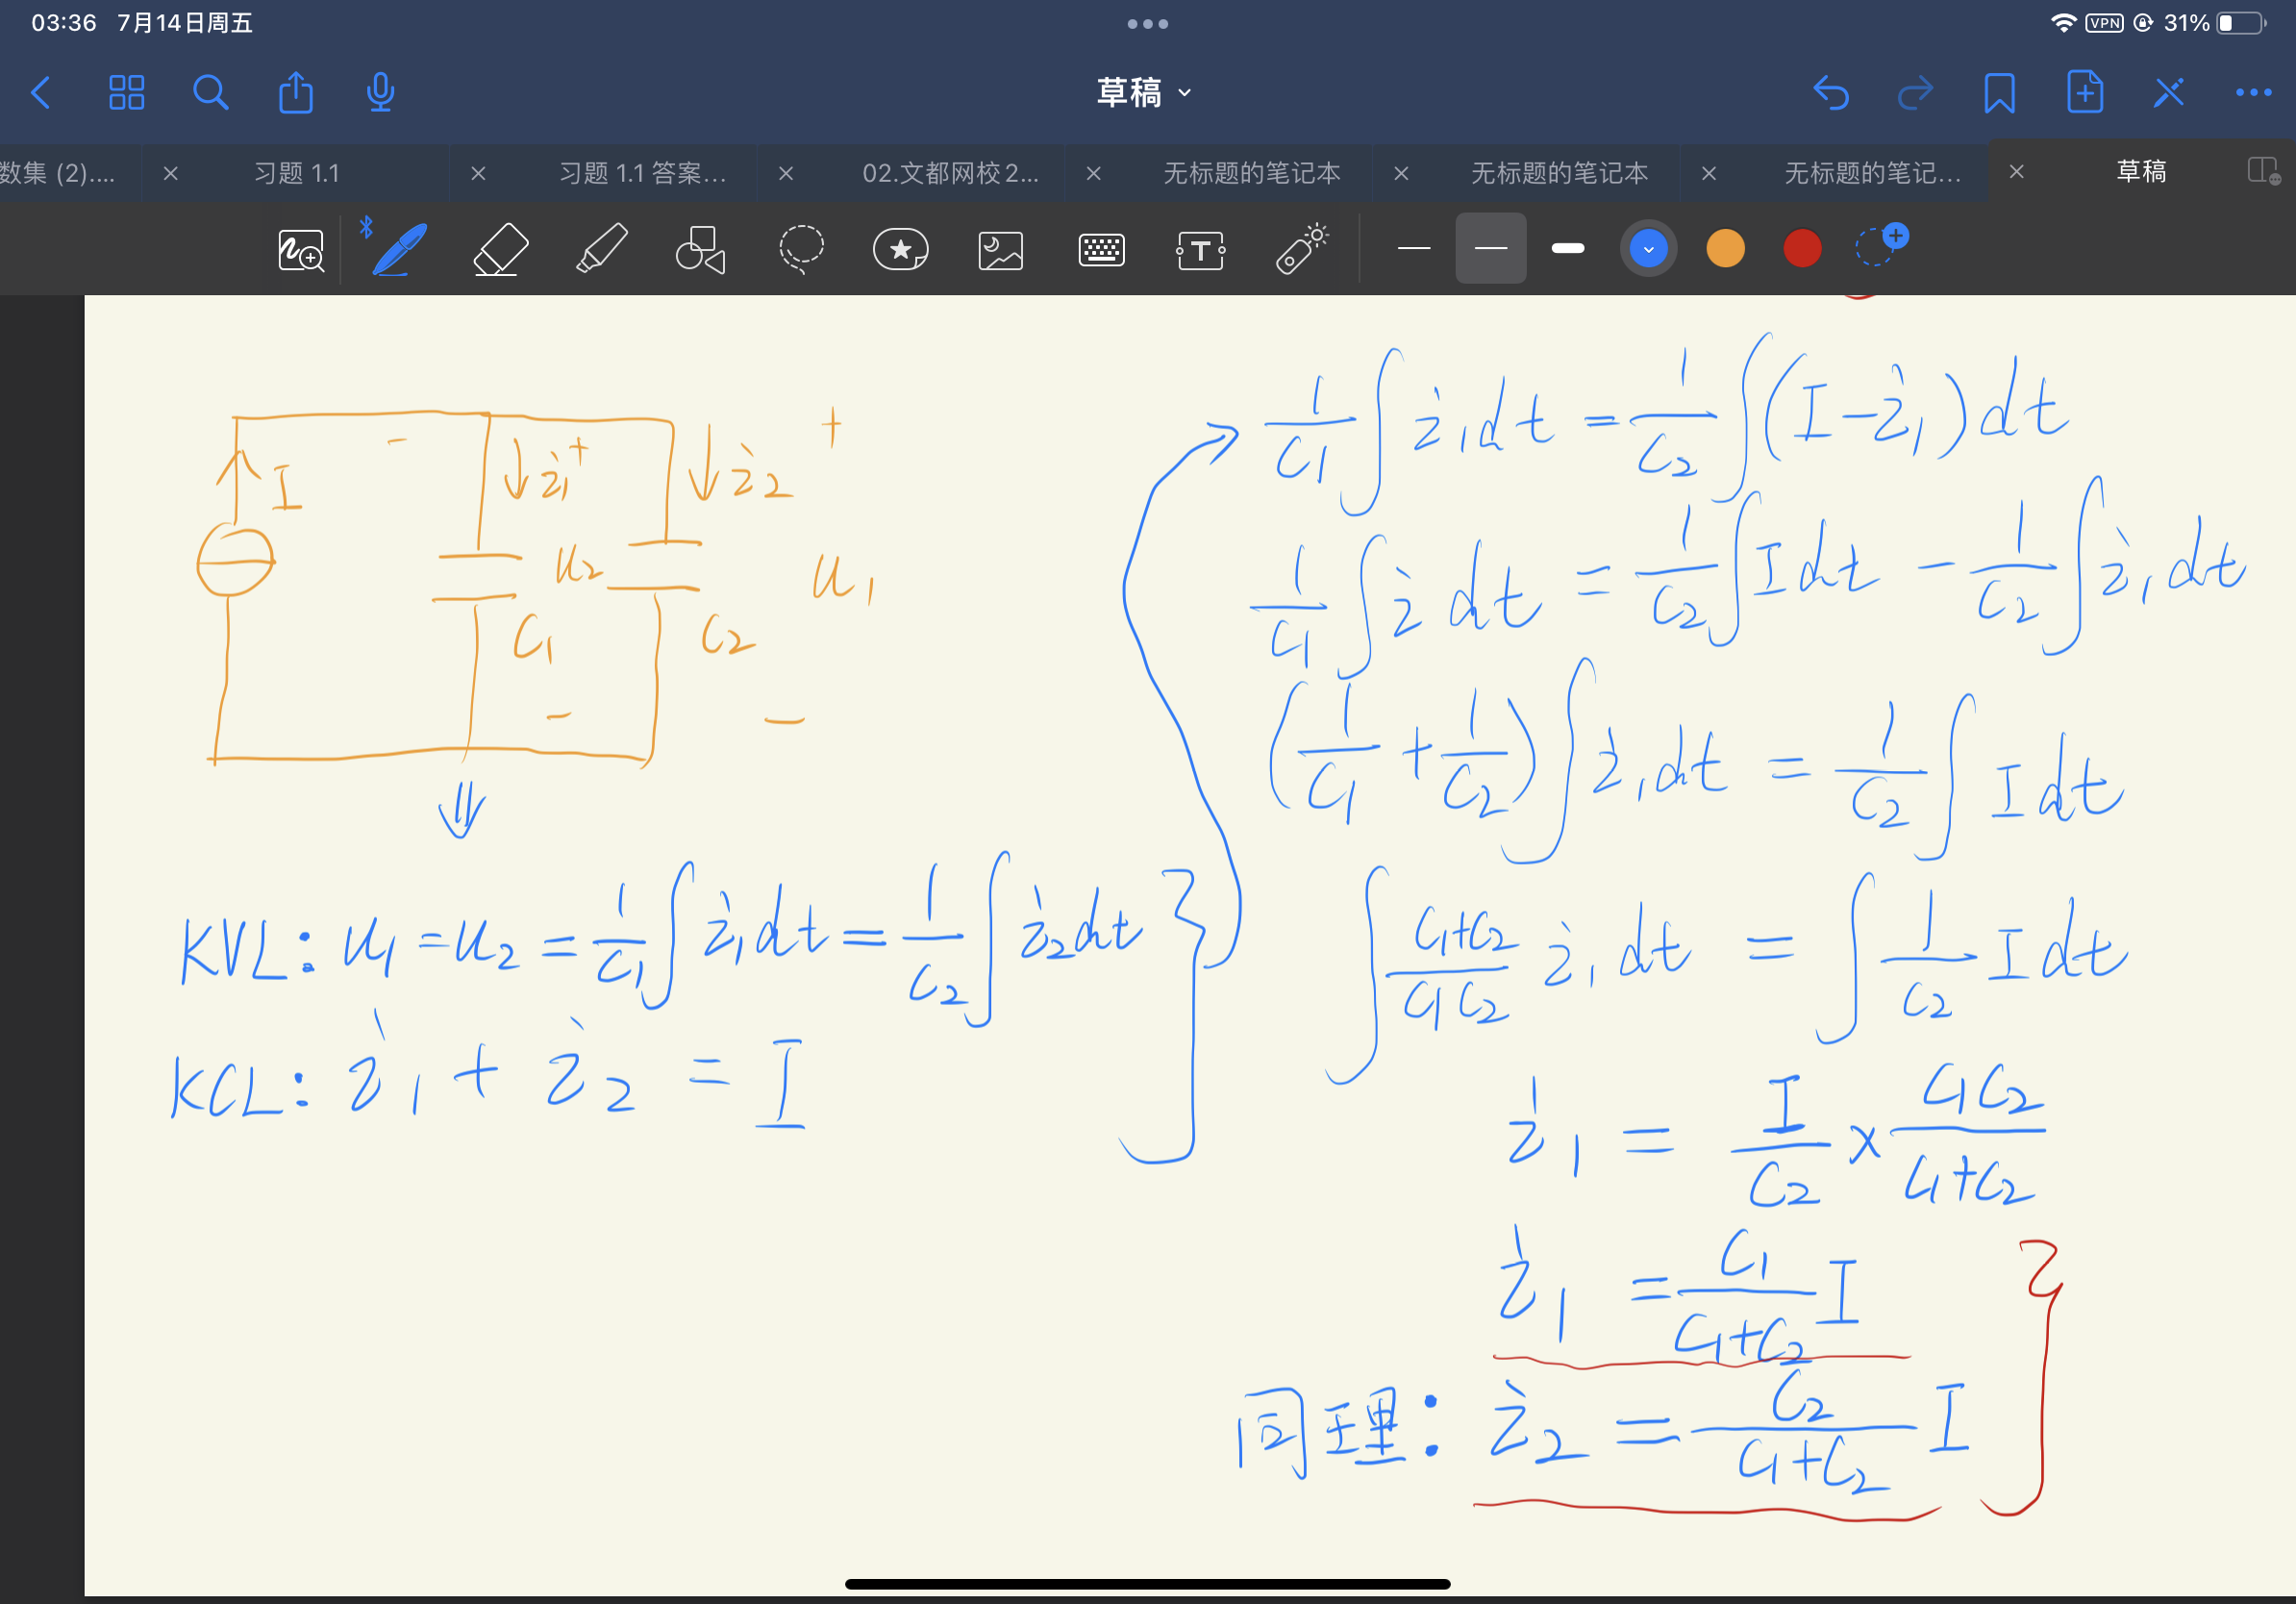 03:36 7月14日周五
VPN 31%
草稿
数集 (2).... 习题 1.1 习题 1.1 答案... 02.文都网校 2... 无标题的笔记本 无标题的笔记本 无标题的笔记... 草稿
T
I - i₁ + i₂ +
u₂ u₁
C₁ C₂
- -
KVL: u₁ = u₂ = 1/C₁ ∫ i₁dt = 1/C₂ ∫ i₂dt
KCL: i₁ + i₂ = I
1/C₁ ∫ i₁dt = 1/C₂ ∫ (I - i₁) dt
1/C₁ ∫ i dt = 1/C₂ ∫ I dt - 1/C₂ ∫ i₁ dt
(1/C₁ + 1/C₂) ∫ i₁dt = 1/C₂ ∫ I dt
∫ (C₁+C₂)/(C₁C₂) i₁ dt = ∫ 1/C₂ I dt
i₁ = I/C₂ × C₁C₂/(C₁+C₂)
i₁ = C₁/(C₁+C₂) I
同理: i₂ = C₂/(C₁+C₂) I